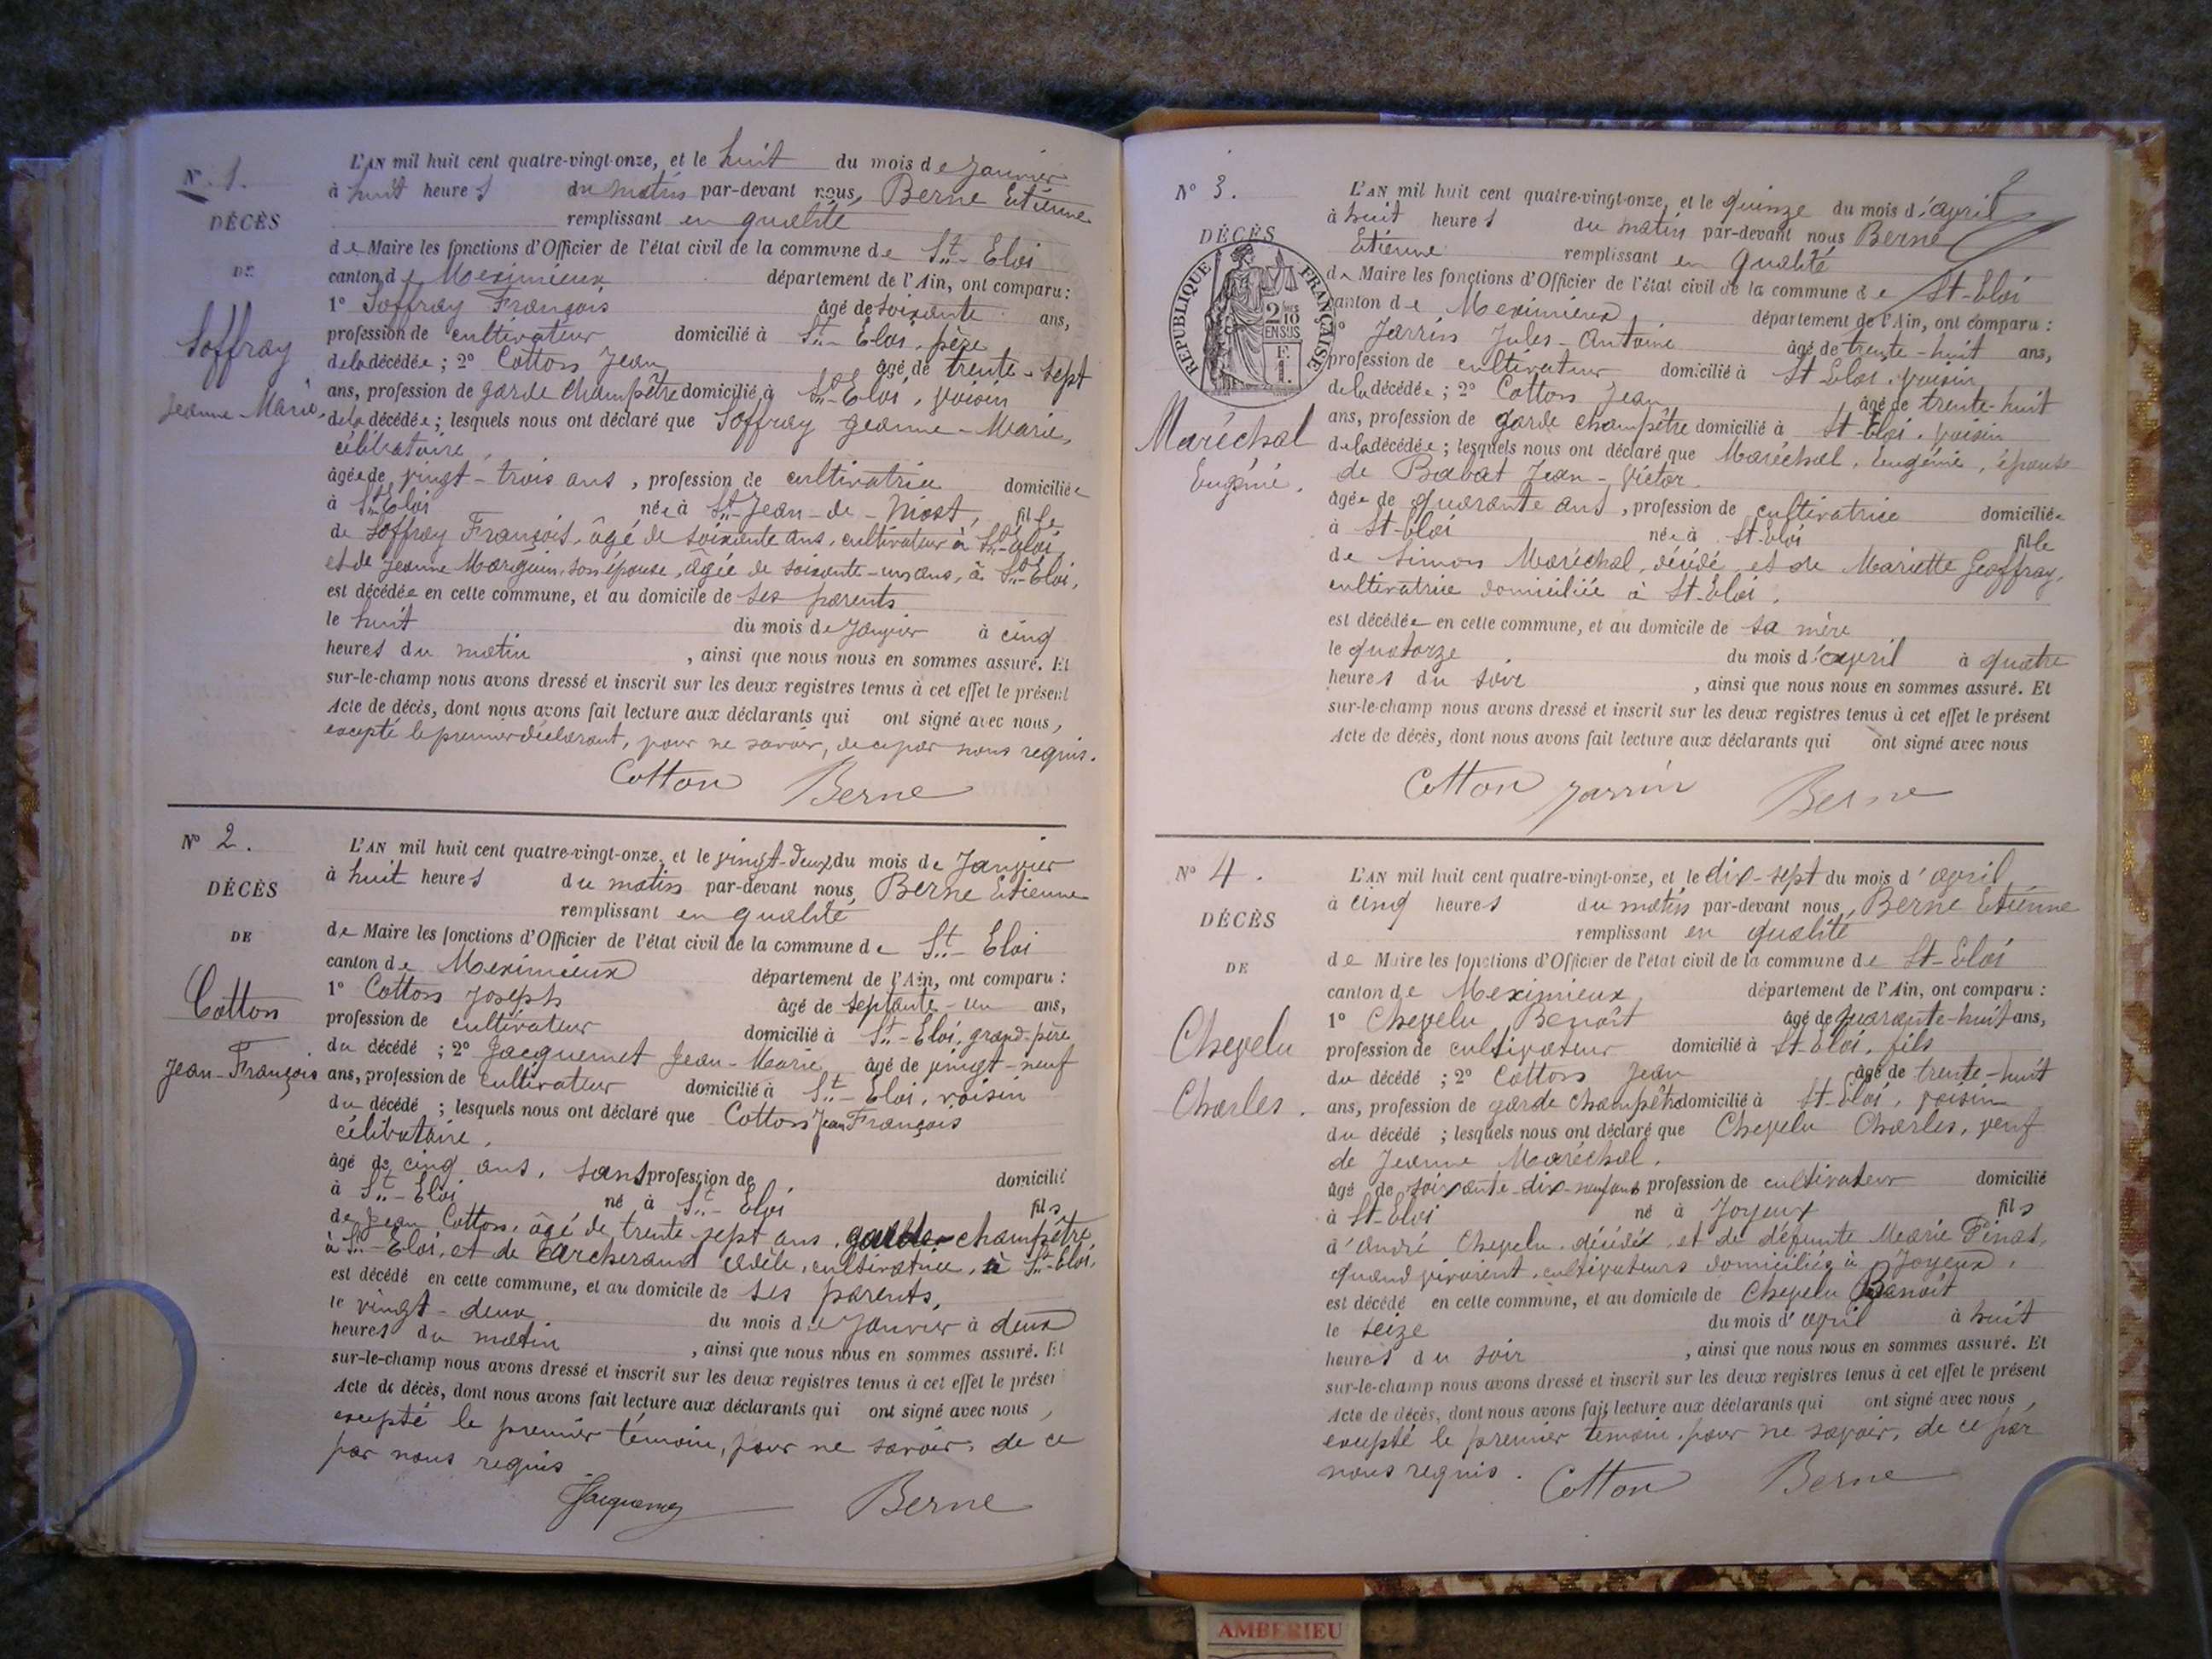 N° 1.
DÉCÈS
DE
Joffray
Jeanne-Marie,
L'AN mil huit cent quatre-vingt-onze, et le huit du mois de Janvier
à huit heures du matin par-devant nous, Berne Etienne
remplissant en qualité
de Maire les fonctions d'Officier de l'état civil de la commune de St-Eloi
canton de Meximieux département de l'Ain, ont comparu :
1° Joffray François âgé de soixante ans,
profession de cultivateur domicilié à St-Eloi, père
de la décédée ; 2° Cotton Jean âgé de trente-sept
ans, profession de garde champêtre domicilié à St-Eloi, voisin
de la décédée ; lesquels nous ont déclaré que Joffray Jeanne-Marie,
célibataire,
âgée de vingt-trois ans, profession de cultivatrice domiciliée
à St-Eloi née à St-Jean-de-Niost, fille
de Joffray François, âgé de soixante ans, cultivateur à St-Eloi,
et de Jeanne Marguin, son épouse, âgée de soixante-un ans, à St-Eloi,
est décédée en cette commune, et au domicile de ses parents
le huit du mois de Janvier à cinq
heures du matin, ainsi que nous nous en sommes assuré. Et
sur-le-champ nous avons dressé et inscrit sur les deux registres tenus à cet effet le présent
Acte de décès, dont nous avons fait lecture aux déclarants qui ont signé avec nous,
excepté le premier déclarant, pour ne savoir, de ce par nous requis.
Cotton Berne
N° 2.
DÉCÈS
DE
Cotton
Jean-François
L'AN mil huit cent quatre-vingt-onze, et le vingt-deux du mois de Janvier
à huit heures du matin par-devant nous, Berne Etienne
remplissant en qualité
de Maire les fonctions d'Officier de l'état civil de la commune de St-Eloi
canton de Meximieux département de l'Ain, ont comparu :
1° Cotton Joseph âgé de septante-un ans,
profession de cultivateur domicilié à St-Eloi, grand-père
du décédé ; 2° Jacquemet Jean-Marie âgé de vingt-neuf
ans, profession de cultivateur domicilié à St-Eloi, voisin
du décédé ; lesquels nous ont déclaré que Cotton Jean François
célibataire.
âgé de cinq ans, sans profession de domicilié
à St-Eloi né à St-Eloi fils
de Jean Cotton, âgé de trente-sept ans, garde champêtre
à St-Eloi, et de Archerand Adèle, cultivatrice, à St-Eloi,
est décédé en cette commune, et au domicile de ses parents,
le vingt-deux du mois de Janvier à deux
heures du matin, ainsi que nous nous en sommes assuré. Et
sur-le-champ nous avons dressé et inscrit sur les deux registres tenus à cet effet le présen
Acte de décès, dont nous avons fait lecture aux déclarants qui ont signé avec nous,
excepté le premier témoin, pour ne savoir, de ce
par nous requis
Jacquemet Berne
N° 3.
DÉCÈS
RÉPUBLIQUE FRANÇAISE
2 10mes
EN SUS
Maréchal
Eugénie.
L'AN mil huit cent quatre-vingt-onze, et le quinze du mois d'avril
à huit heures du matin par-devant nous Berne
Etienne remplissant en qualité
de Maire les fonctions d'Officier de l'état civil de la commune de St-Eloi
canton de Meximieux département de l'Ain, ont comparu :
1° Jarrin Jules-Antoine âgé de trente-huit ans,
profession de cultivateur domicilié à St Eloi, voisin
de la décédée ; 2° Cotton Jean âgé de trente-huit
ans, profession de garde champêtre domicilié à St-Eloi, voisin
de la décédée ; lesquels nous ont déclaré que Maréchal, Eugénie, épouse
de Babat Jean-Victor.
âgée de quarante ans, profession de cultivatrice domiciliée
à St-Eloi née à St-Eloi fille
de Simon Maréchal, décédé, et de Mariette Geoffray,
cultivatrice domiciliée à St-Eloi,
est décédée en cette commune, et au domicile de sa mère
le quatorze du mois d'avril à quatre
heures du soir, ainsi que nous nous en sommes assuré. Et
sur-le-champ nous avons dressé et inscrit sur les deux registres tenus à cet effet le présent
Acte de décès, dont nous avons fait lecture aux déclarants qui ont signé avec nous
Cotton Jarrin Berne
N° 4.
DÉCÈS
DE
Chevelu
Charles.
L'AN mil huit cent quatre-vingt-onze, et le dix-sept du mois d'avril
à cinq heures du matin par-devant nous, Berne Etienne
remplissant en qualité
de Maire les fonctions d'Officier de l'état civil de la commune de St-Eloi
canton de Meximieux département de l'Ain, ont comparu :
1° Chevelu Benoît âgé de quarante-huit ans,
profession de cultivateur domicilié à St-Eloi, fils
du décédé ; 2° Cotton Jean âgé de trente-huit
ans, profession de garde champêtre domicilié à St-Eloi, voisin
du décédé ; lesquels nous ont déclaré que Chevelu Charles, veuf
de Jeanne Maréchal.
âgé de soixante-dix-neuf ans profession de cultivateur domicilié
à St-Eloi né à Joyeux fils
d'André Chevelu, décédé, et de défunte Marie Pinat,
quand vivaient, cultivateurs domiciliés à Joyeux,
est décédé en cette commune, et au domicile de Chevelu Benoît
le seize du mois d'avril à huit
heures du soir, ainsi que nous nous en sommes assuré. Et
sur-le-champ nous avons dressé et inscrit sur les deux registres tenus à cet effet le présent
Acte de décès, dont nous avons fait lecture aux déclarants qui ont signé avec nous,
excepté le premier témoin, pour ne savoir, de ce par
nous requis. Cotton Berne
AMBERIEU